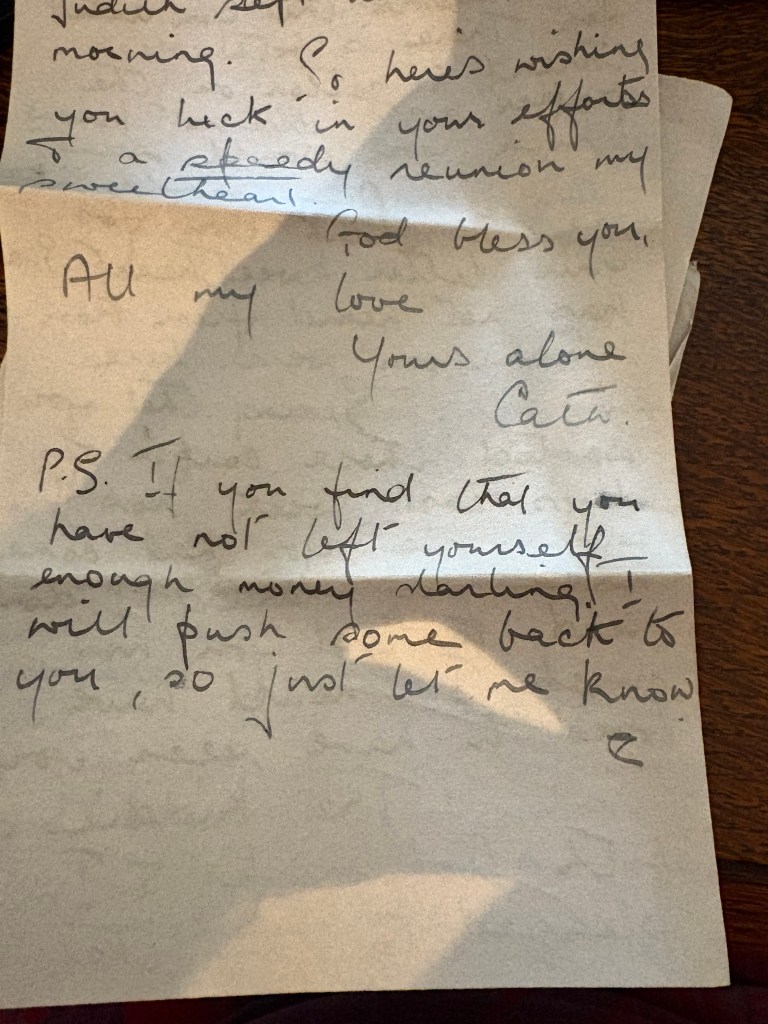 Judith
morning. So here's wishing
you luck in your efforts
& a speedy reunion my
sweetheart.
God bless you,
All my love
Yours alone
Cath.
P.S. If you find that you
have not left yourself
enough money darling, I
will push some back to
you, so just let me know
C